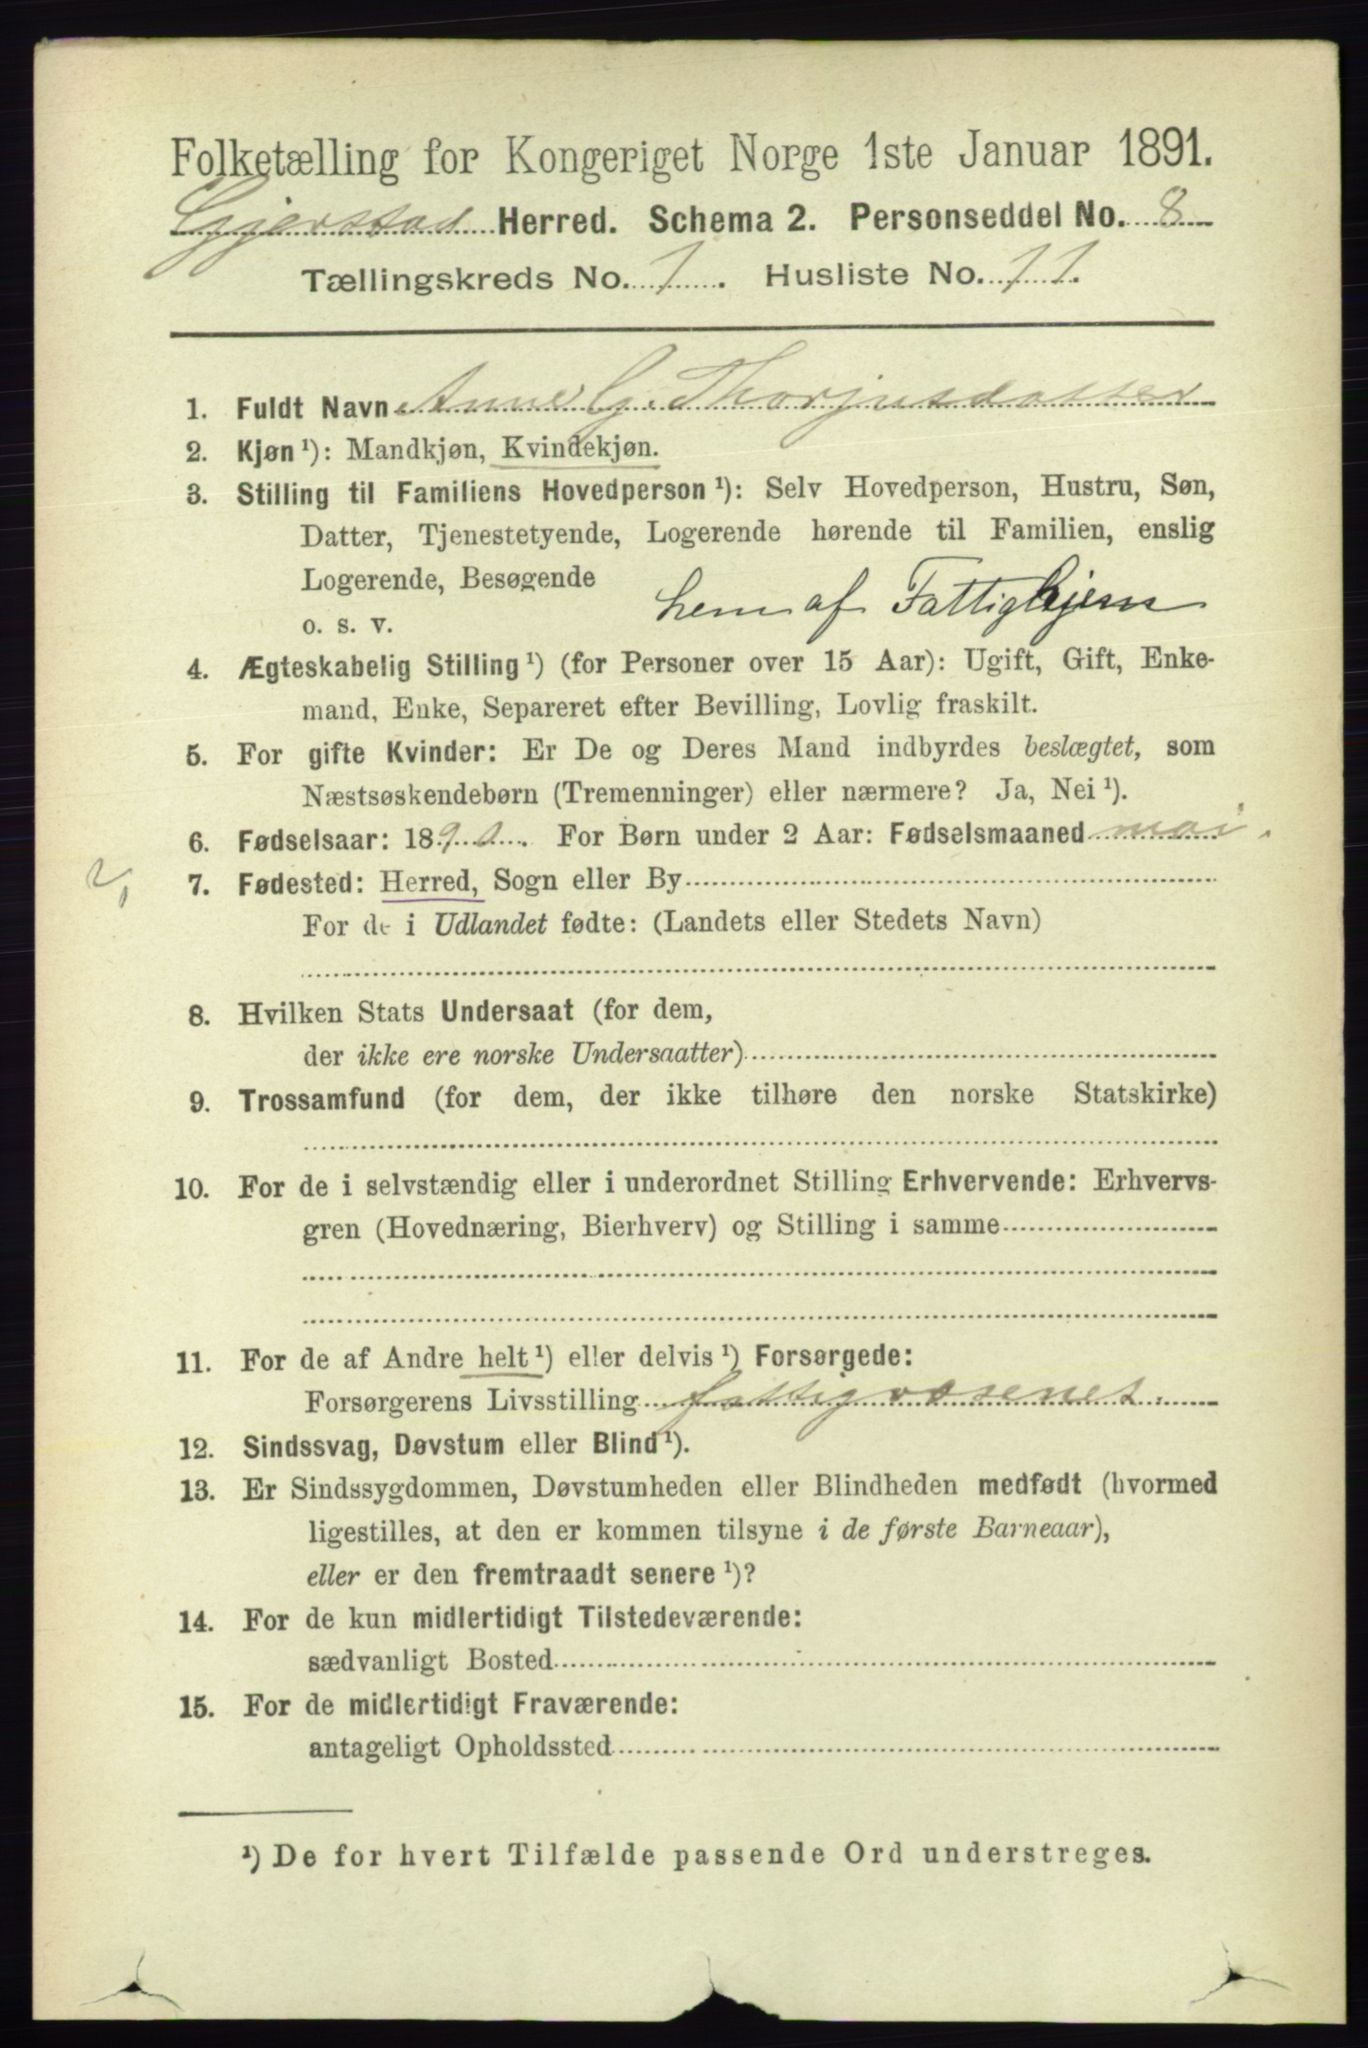 Folketælling for Kongeriget Norge 1ste Januar 1891.
Gjerstad Herred. Schema 2. Personseddel No. 8
Tællingskreds No. 1. Husliste No. 11.
1. Fuldt Navn Anne G. Thorjusdatter
2. Kjøn ¹): Mandkjøn, Kvindekjøn.
3. Stilling til Familiens Hovedperson ¹): Selv Hovedperson, Hustru, Søn,
Datter, Tjenestetyende, Logerende hørende til Familien, enslig
Logerende, Besøgende
o. s. v.
lem af Fattighjem
4. Ægteskabelig Stilling ¹) (for Personer over 15 Aar): Ugift, Gift, Enke-
mand, Enke, Separeret efter Bevilling, Lovlig fraskilt.
5. For gifte Kvinder: Er De og Deres Mand indbyrdes beslægtet, som
Næstsøskendebørn (Tremenninger) eller nærmere? Ja, Nei ¹).
6. Fødselsaar: 1890. For Børn under 2 Aar: Fødselsmaaned mai.
7. Fødested: Herred, Sogn eller By
For de i Udlandet fødte: (Landets eller Stedets Navn)
8. Hvilken Stats Undersaat (for dem,
der ikke ere norske Undersaatter)
9. Trossamfund (for dem, der ikke tilhøre den norske Statskirke)
10. For de i selvstændig eller i underordnet Stilling Erhvervende: Erhvervs-
gren (Hovednæring, Bierhverv) og Stilling i samme
11. For de af Andre helt ¹) eller delvis ¹) Forsørgede:
Forsørgerens Livsstilling fattigvæsenet.
12. Sindssvag, Døvstum eller Blind ¹).
13. Er Sindssygdommen, Døvstumheden eller Blindheden medfødt (hvormed
ligestilles, at den er kommen tilsyne i de første Barneaar),
eller er den fremtraadt senere ¹)?
14. For de kun midlertidigt Tilstedeværende:
sædvanligt Bosted
15. For de midlertidigt Fraværende:
antageligt Opholdssted
¹) De for hvert Tilfælde passende Ord understreges.